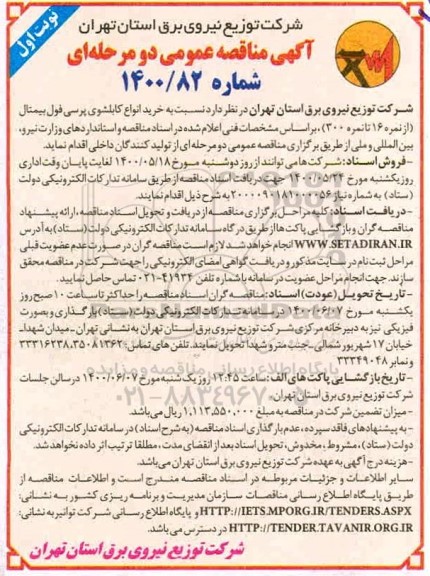 نوبت اول
شرکت توزیع نیروی برق استان تهران
آگهی مناقصه عمومی دو مرحله‌ای
شماره ۱۴۰۰/۸۲
شرکت توزیع نیروی برق استان تهران در نظر دارد نسبت به خرید انواع کابلشوی پرسی فول بیمتال
(از نمره ۱۶ تا نمره ۳۰۰)، براساس مشخصات فنی اعلام شده در اسناد مناقصه و استانداردهای وزارت نیرو،
بین المللی و ملی از طریق برگزاری مناقصه عمومی دو مرحله‌ای از تولید کنندگان داخلی اقدام نماید.
- فروش اسناد: شرکت ها می توانند از روز دوشنبه مورخ ۱۴۰۰/۰۵/۱۸ لغایت پایان وقت اداری
روز یکشنبه مورخ ۱۴۰۰/۰۵/۲۴ جهت دریافت اسناد مناقصه از طریق سامانه تدارکات الکترونیکی دولت
(ستاد) به شماره نیاز ۲۰۰۰۰۹۰۱۸۱۰۰۰۰۵۶ به شرح ذیل اقدام نمایند.
- دریافت اسناد: کلیه مراحل برگزاری مناقصه از دریافت و تحویل اسناد مناقصه، ارائه پیشنهاد
مناقصه گران و بازگشایی پاکت ها از طریق درگاه سامانه تدارکات الکترونیکی دولت (ستاد) به آدرس
WWW.SETADIRAN.IR انجام خواهد شد. لازم است مناقصه گران در صورت عدم عضویت قبلی
مراحل ثبت نام در سایت مذکور و دریافت گواهی امضای الکترونیکی را جهت شرکت در مناقصه محقق
سازند. جهت انجام مراحل عضویت در سامانه با شماره تلفن ۴۱۹۳۴-۰۲۱ تماس حاصل نمایید.
- تاریخ تحویل (عودت) اسناد: مناقصه گران اسناد مناقصه را حداکثر تا ساعت ۱۰ صبح روز
یکشنبه مورخ ۱۴۰۰/۰۶/۰۷ در سامانه تدارکات الکترونیکی دولت (ستاد) بارگذاری و بصورت
فیزیکی نیز به دبیرخانه مرکزی شرکت توزیع نیروی برق استان تهران به نشانی تهران - میدان شهدا-
خیابان ۱۷ شهریور شمالی- جنب مترو شهدا تحویل نمایند. تلفن های تماس: ۳۵۰۸۱۳۶۲، ۳۳۳۱۶۲۳۸
و نمابر ۳۳۳۴۹۰۴۸
- تاریخ بازگشایی پاکت های الف: ساعت ۱۲:۴۵ روز یکشنبه مورخ ۱۴۰۰/۰۶/۰۷ در سالن جلسات
شرکت توزیع نیروی برق استان تهران.
- میزان تضمین شرکت در مناقصه به مبلغ ۱,۱۱۳,۵۵۰,۰۰۰ ریال می باشد.
- به پیشنهادهای فاقد سپرده، عدم بارگذاری اسناد مناقصه (به شرح اسناد) در سامانه تدارکات الکترونیکی
دولت (ستاد)، مشروط، مخدوش، تحویل اسناد بعد از انقضای مدت، مطلقا ترتیب اثر داده نخواهد شد.
- هزینه درج آگهی به عهده شرکت توزیع نیروی برق استان تهران می باشد.
سایر اطلاعات و جزئیات مربوطه در اسناد مناقصه مندرج است و اطلاعات مناقصه از
طریق پایگاه اطلاع رسانی مناقصات سازمان مدیریت و برنامه ریزی کشور به نشانی:
HTTP://IETS.MPORG.IR/TENDERS.ASPX و پایگاه اطلاع رسانی شرکت توانیر به نشانی:
HTTP://TENDER.TAVANIR.ORG.IR در دسترس می باشد.
شرکت توزیع نیروی برق استان تهران
پایگاه اطلاع رسانی مناقصه و مزایده
۰۲۱-۸۸۳۴۹۶۷۰-۵